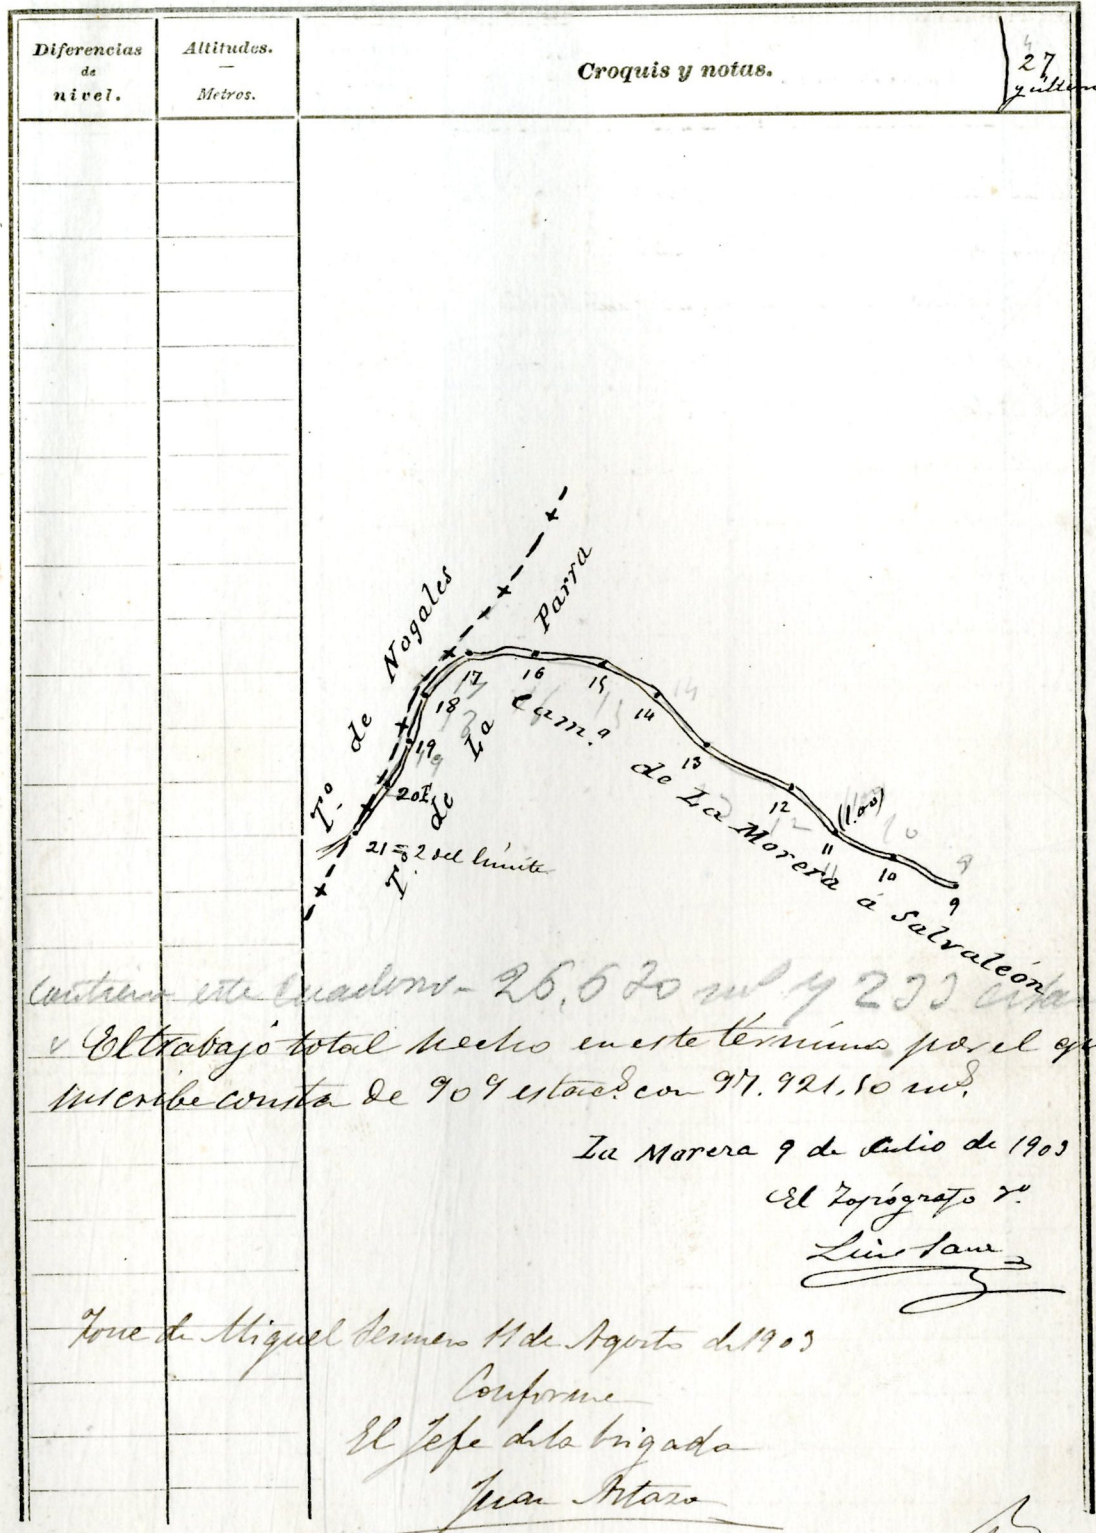 Diferencias
de
nivel.
Altitudes.
Metros.
Croquis y notas.
27
y último
Tº. de Nogales
Tº. de La Parra
Cam.º de La Morera á Salvaleón
17
16
15
14
13
12
11
(1.00)
10
9
18
19
20I
21=2 del límite
Contiene este Cuaderno - 26,630 mˢ y 233
El trabajo total hecho en este término por el que
suscribe consta de 909 estacˢ. con 97.921,50 mˢ.
La Morera 9 de Julio de 1903
El Topógrafo
Torre de Miguel Sesmero 11 de Agosto de 1903
Conforme
El Jefe de la brigada
Juan